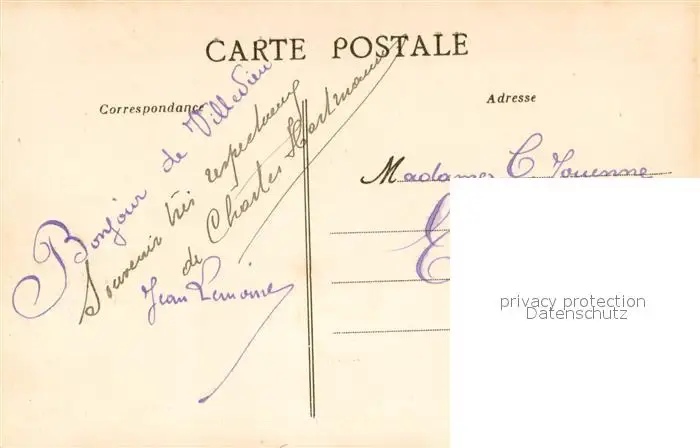 CARTE POSTALE
Correspondance
Adresse
Bonjour de Villedieu
Souvenir très respectueux
de Charles Hartmann
Jean Lemoine
Madame C. Jouenne
privacy protection
Datenschutz